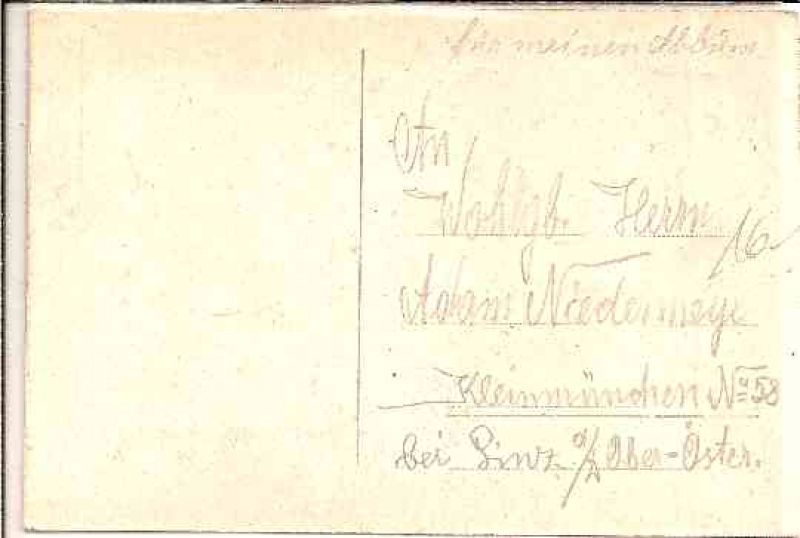 für meinen Album
An
Wohlgb. Herrn
16
Adam Niedermeye
Kleinmünchen No 58
bei Linz a/D Ober-Öster.